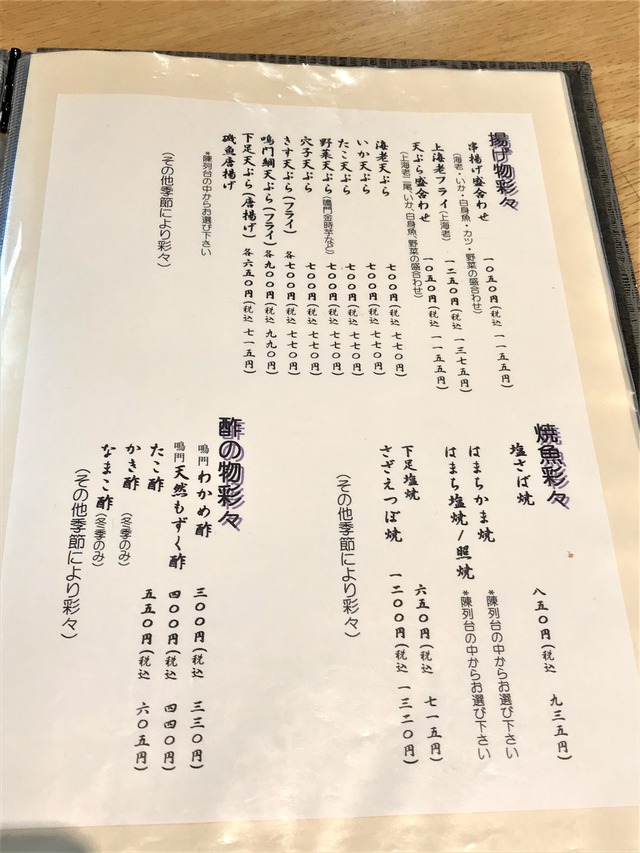 揚げ物彩々
串揚げ盛合わせ 一〇五〇円(税込 一一五五円)
(海老・いか・白身魚・カツ・野菜の盛合わせ)
上海老フライ(上海老) 一二五〇円(税込 一三七五円)
天ぷら盛合わせ 一〇五〇円(税込 一一五五円)
(上海老二尾、いか、白身魚、野菜の盛合わせ)
海老天ぷら 七〇〇円(税込 七七〇円)
いか天ぷら 七〇〇円(税込 七七〇円)
たこ天ぷら 七〇〇円(税込 七七〇円)
野菜天ぷら(鳴門金時芋など) 七〇〇円(税込 七七〇円)
穴子天ぷら 七〇〇円(税込 七七〇円)
きす天ぷら(フライ) 各七〇〇円(税込 七七〇円)
鳴門鯛天ぷら(フライ) 各九〇〇円(税込 九九〇円)
下足天ぷら(唐揚げ) 各六五〇円(税込 七一五円)
磯魚唐揚げ
*陳列台の中からお選び下さい
(その他季節により彩々)
焼魚彩々
塩さば焼 八五〇円(税込 九三五円)
はまちかま焼 *陳列台の中からお選び下さい
はまち塩焼/照焼 *陳列台の中からお選び下さい
下足塩焼 六五〇円(税込 七一五円)
さざえつぼ焼 一二〇〇円(税込 一三二〇円)
(その他季節により彩々)
酢の物彩々
鳴門わかめ酢 三〇〇円(税込 三三〇円)
鳴門天然もずく酢 四〇〇円(税込 四四〇円)
たこ酢 五五〇円(税込 六〇五円)
かき酢 (冬季のみ)
なまこ酢 (冬季のみ)
(その他季節により彩々)